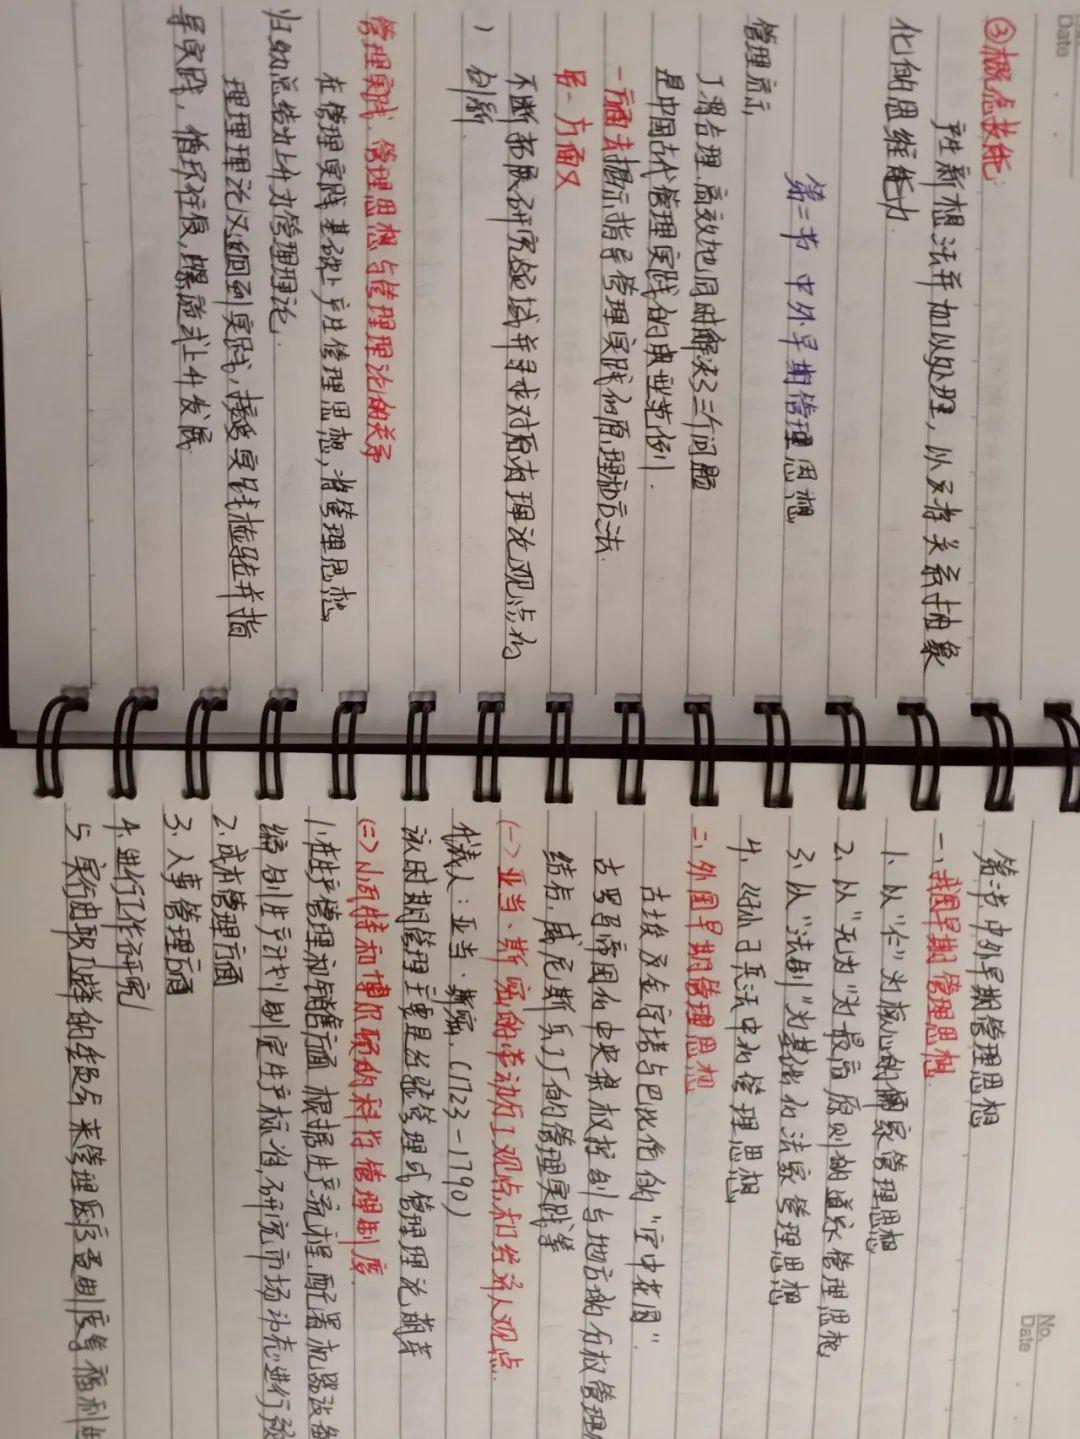 Date
③概念技能:
产生新想法并加以处理，以及将关系抽象
化的思维能力
第二节 中外早期管理思想
管理启示
丁谓合理、高效地同时解决了三个问题
是中国古代管理实践的典型案例.
一方面去揭示指导管理实践的原理和方法.
另一方面又
不断拓展研究领域并寻求对原有理论观点的
) 创新.
管理实践、管理思想与管理理论的关系
在管理实践基础上产生管理思想,将管理思想
归纳总结上升为管理理论.
管理理论又回到实践,接受实践检验并指
导实践，循环往复,螺旋式上升发展
No.
Date
第二节 中外早期管理思想
一、我国早期管理思想.
1. 从"仁"为核心的儒家管理思想
2. 以"无为"为最高原则的道家管理思想
3. 以"法制"为基础的法家管理思想
4. 《孙子兵法中的管理思想
二、外国早期管理思想
古埃及金字塔与巴比伦的"空中花园"
古罗马帝国的中央集权控制与地方的分权管理
结合,威尼斯兵工厂的管理实践等
(一)亚当、斯密的劳动分工观点和经济人观点.
代表人：亚当·斯密.(1723-1790)
该时期管理主要是经验管理式 管理理论萌芽
(二)小瓦特和博尔顿的科学管理制度.
1.在生产管理和销售方面 根据生产流程.配置机器设备
编制生产计划制定生产标准,研究市场动态进行预
2.成本管理方面
3、人事管理方面
4.进行工作研究
5、实行由职工选举的委员会来管理医疗费制度等福利